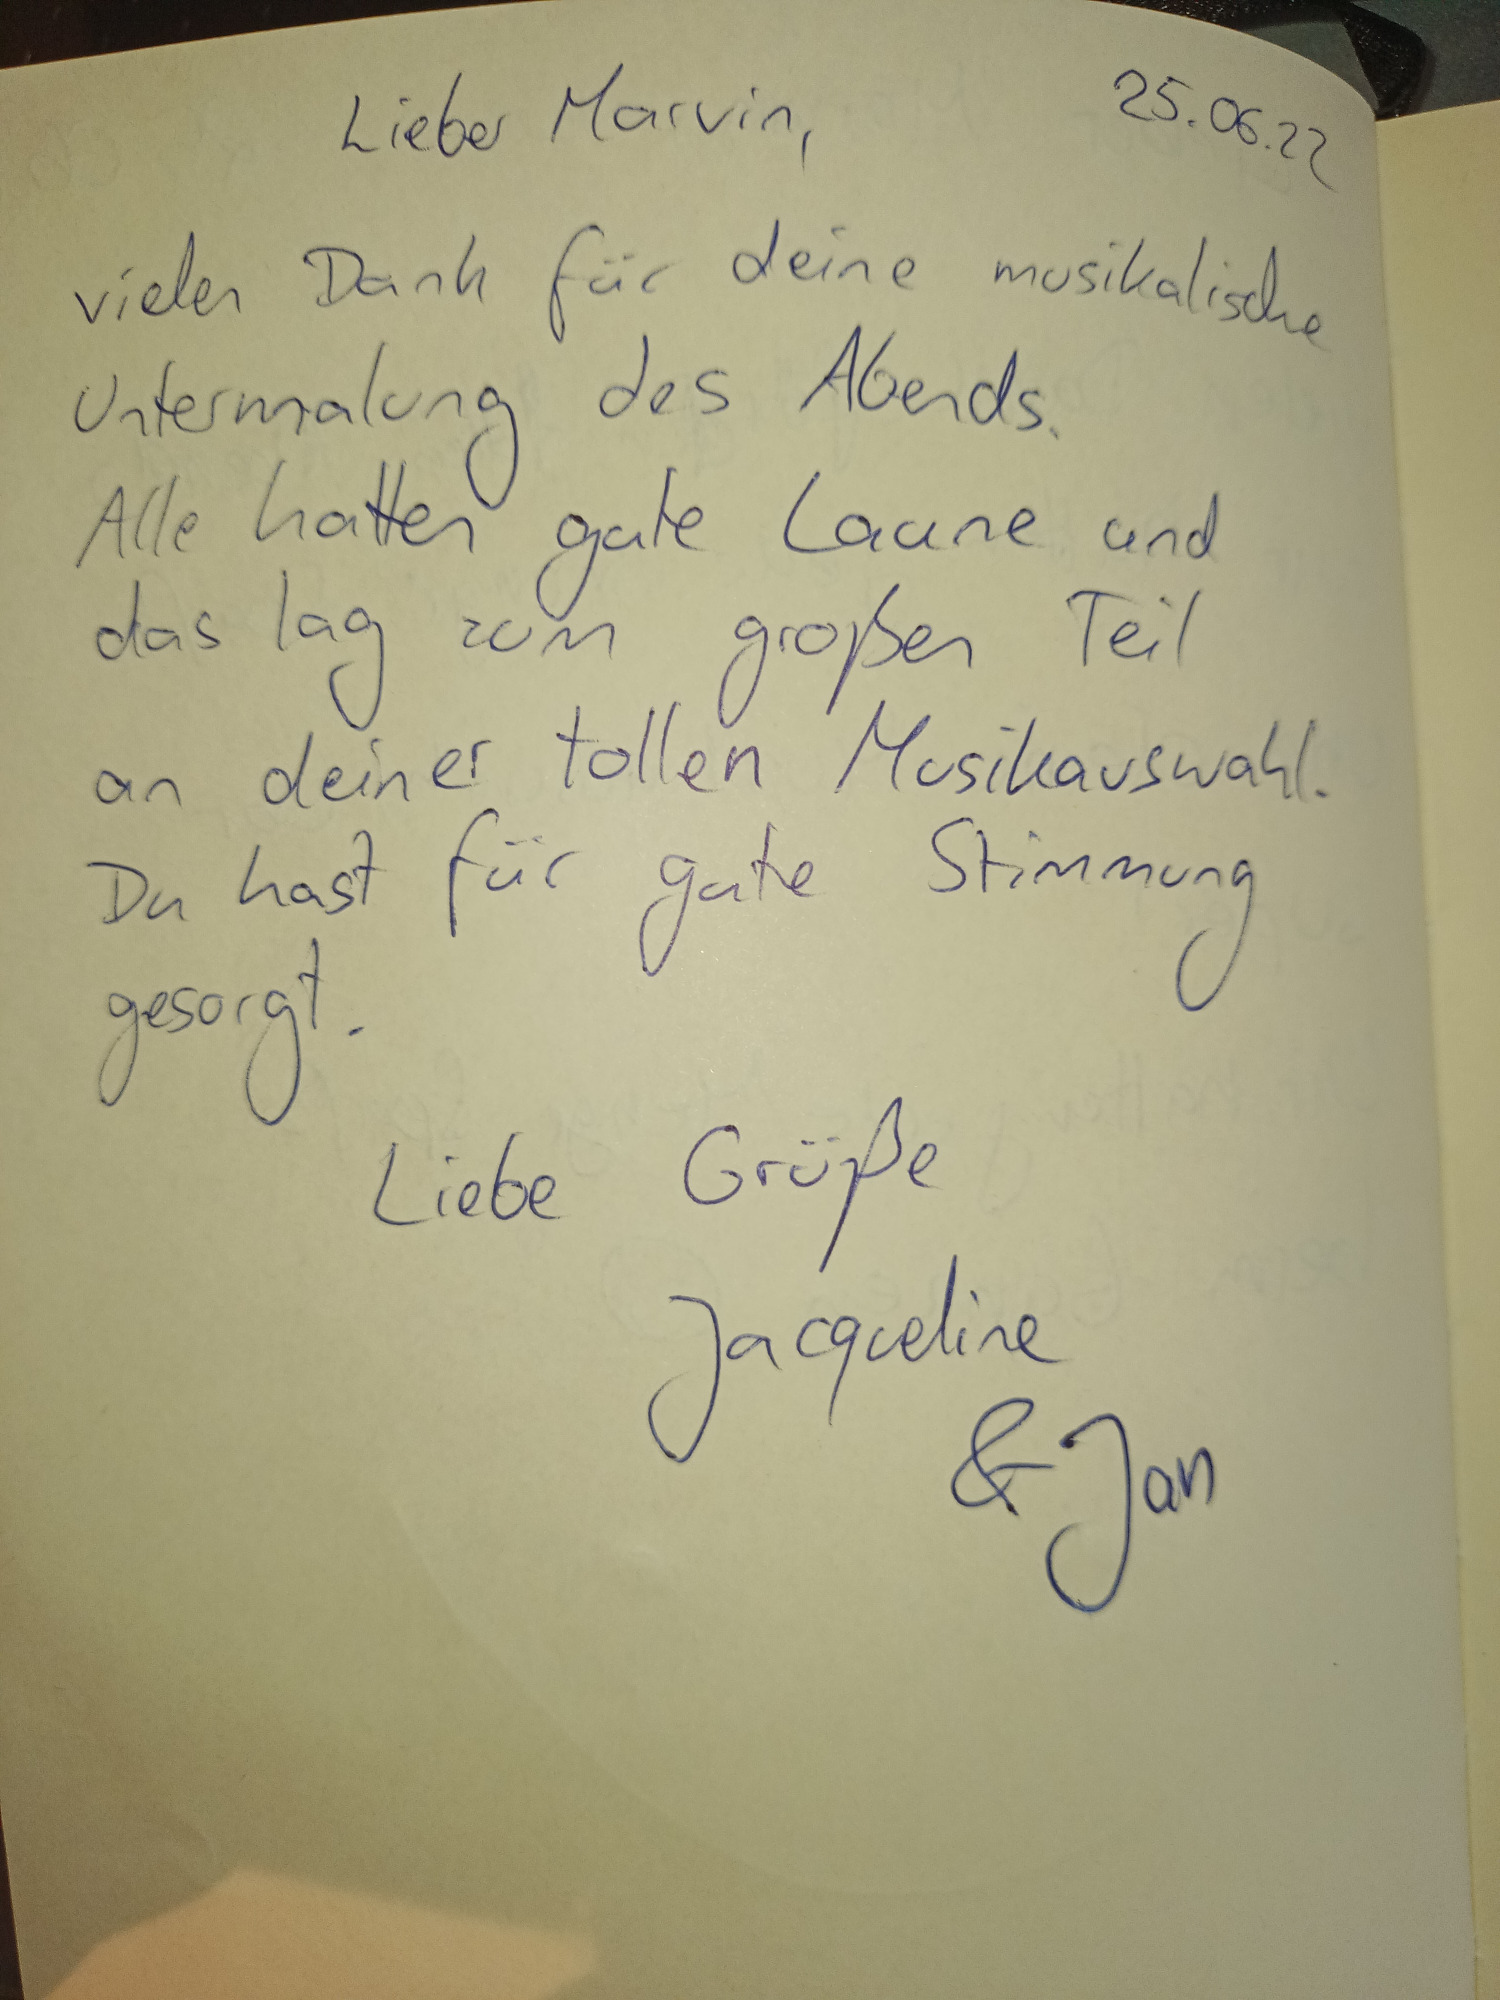 25.06.22
Lieber Marvin,
vielen Dank für deine musikalische
Untermalung des Abends.
Alle hatten gute Laune und
das lag zum großen Teil
an deiner tollen Musikauswahl.
Du hast für gute Stimmung
gesorgt.
Liebe Grüße
Jacqueline
& Jan